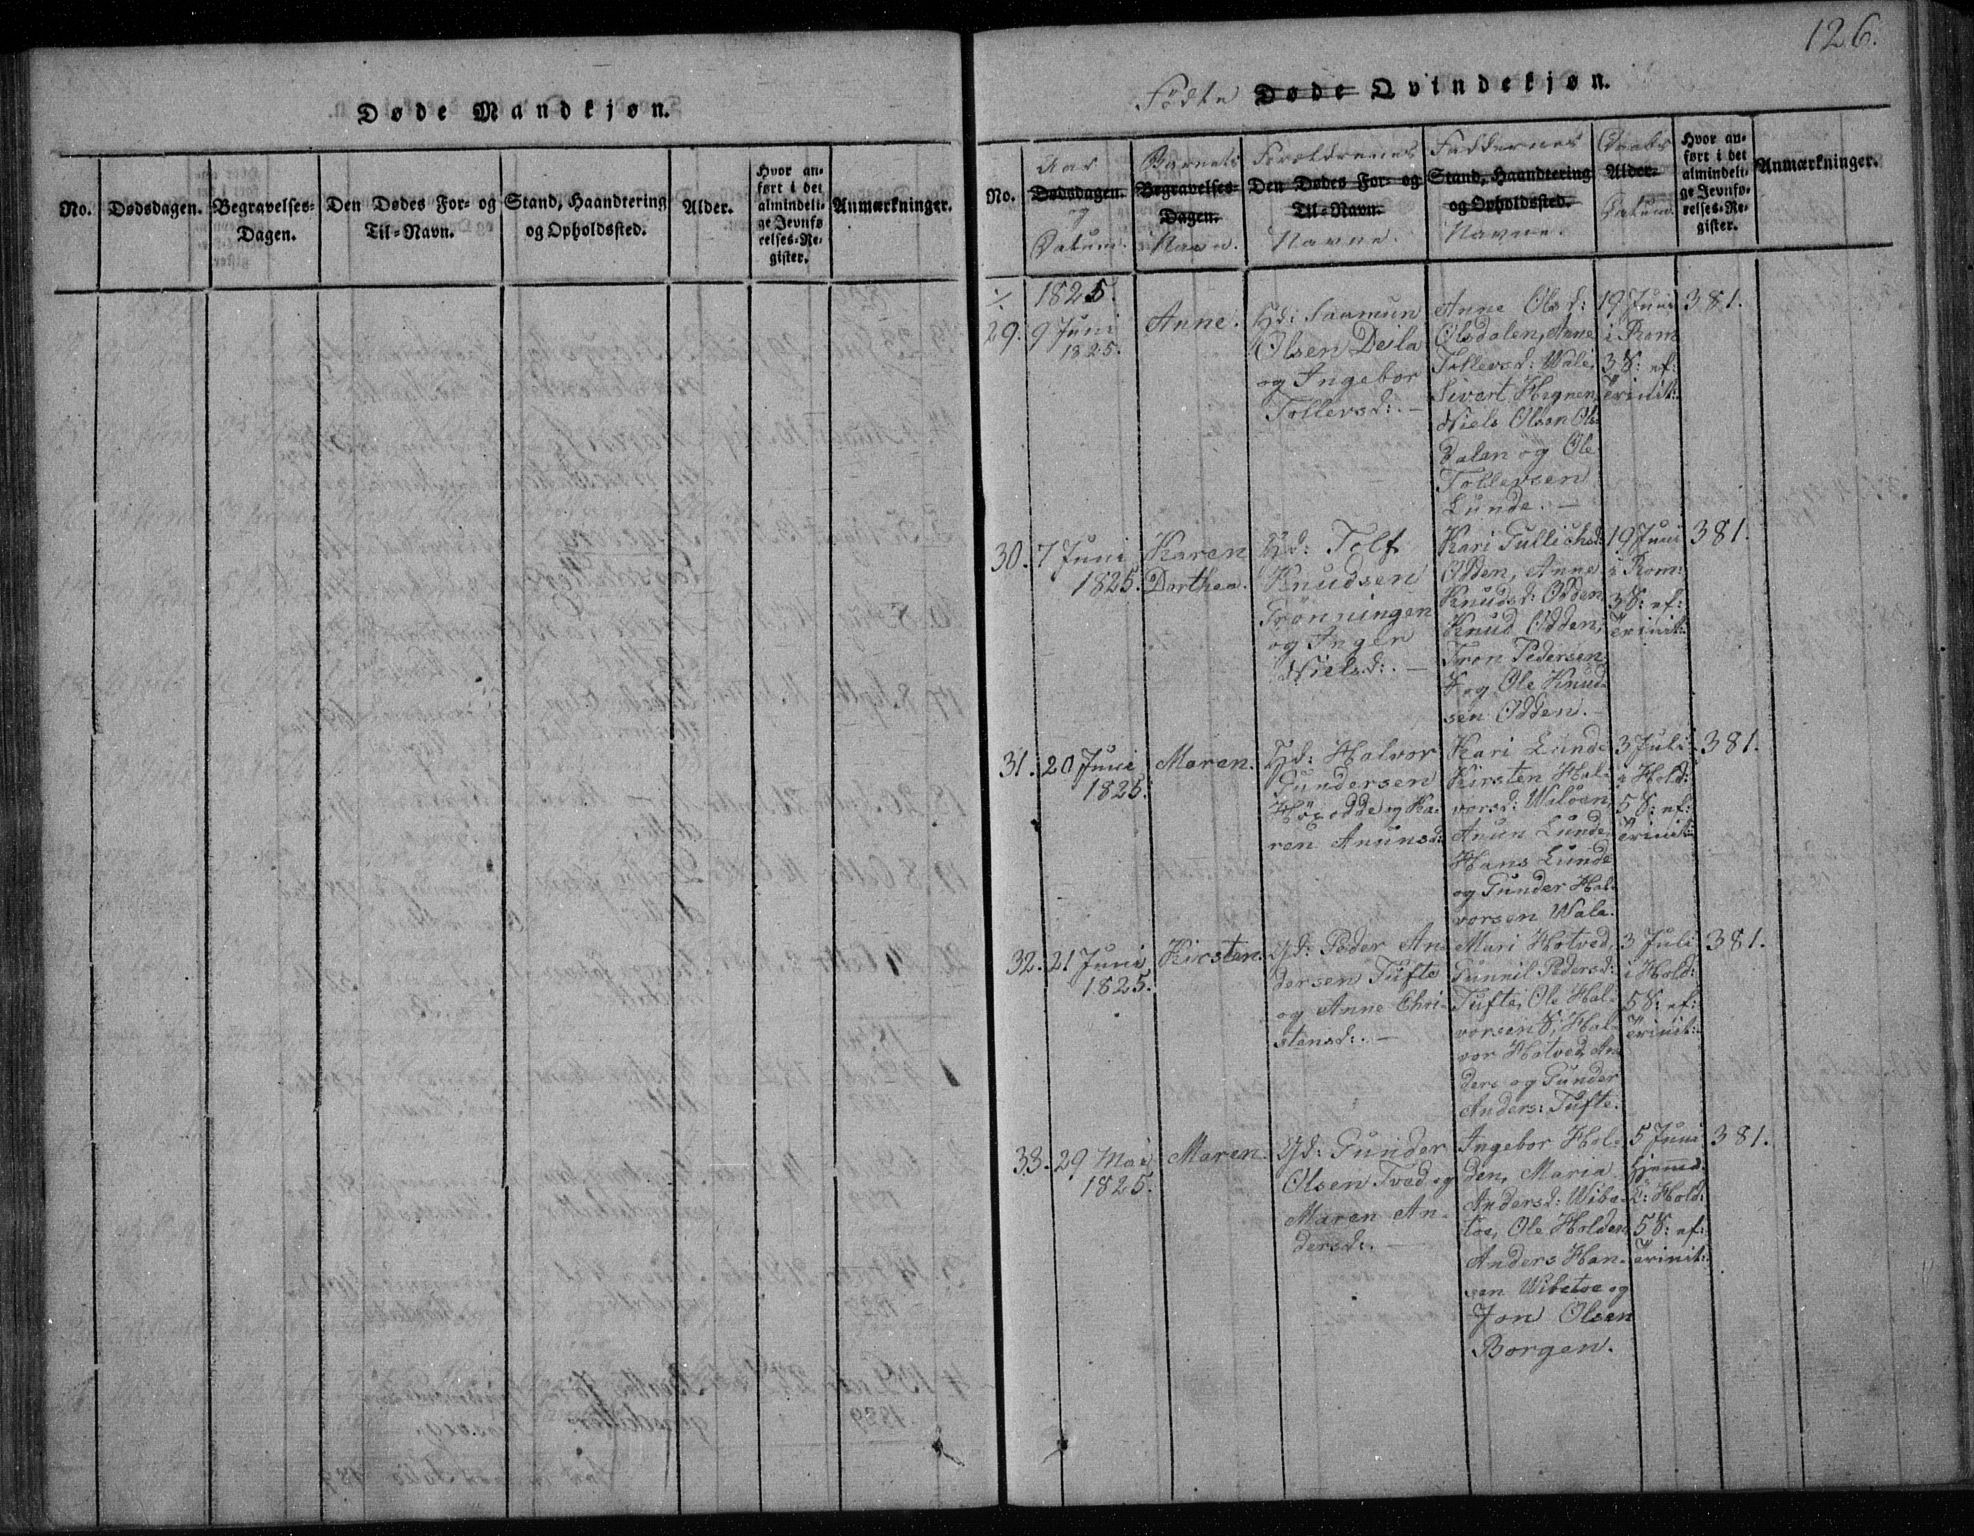 126.
Døde Mandkjøn.
No.
Dødsdagen.
Begravelses-
Dagen.
Den Dødes For- og
Til-Navn.
Stand, Haandtering
og Opholdssted.
Alder.
Hvor an-
ført i det
almindeli-
ge Jevnfø
relses-Re-
gister.
Anmærkninger.
Födte Døde Qvindekjøn.
No.
Aar
Dødsdagen.
og
Datum.
Barnets
Begravelses-
Dagen.
Navn.
Foreldrenes
Den Dødes For- og
Til-Navn.
Navne.
Faddernes
Stand, Haandtering
og Opholdssted.
Navne.
Daabs
Alder.
Datum.
Hvor an-
ført i det
almindeli-
ge Jevnfø-
relses-Re-
gister.
Anmærkninger.
1825.
29.
9 Juni
1825.
Anne.
Saamun
Olsen Deila
og Ingebor
Tollevsd: –
Anne Olsd:
Olsdalen, Anne
Tollevsd: Wale,
Sivert Hegnen,
Niels Olsen Ols-
dalen og Ole
Tollevsen
Lunde. –
19 Juni
i Rom
3 S: ef:
Trinit:
381.
30.
7 Juni
1825.
Karen
Dorthea.
Tolf
Knudsen
Grönningen
og Inger
Nielsd: –
Kari Gullichsd:
Odden, Anne
Knudsd: Odden,
Knud Odden,
Tron Pedersen
og Ole Knud-
sen Odden. –
19 Juni
i Rom:
3 S: ef:
Trinit:
381.
31.
20 Juni
1825.
Maren.
Halvor
Gundersen
og Ka-
ren Anunsd:
Kari Lunde
Kirsten Hal-
vorsd:
Anun Lunde,
Hans Lunde
og Gunder Hal-
vorsen Wala.
3 Juli
i Hold:
5 S: ef:
Trinit:
381.
32.
21 Juni
1825.
Kirsten.
Peder An-
dersen Tufte
og Anne Chri-
stensd: –
Mari Hotved,
Gunnil Pedersd:
Tufte, Ole Hal-
vorsen S, Hal-
vor Hotved, An-
ders og Gunder
Anders: Tufte.
3 Juli
i Hold:
5 S: ef:
Trinit:
381.
33.
29 Mai
1825.
Maren.
Gunder
Olsen Tved og
Maren An-
dersd: –
Ingebor Hol-
den, Maria
Andersd: Wibe-
toe, Ole Holden,
Anders Han-
sen Wibetoe og
Jon Olsen
Borgen.
5 Juni
Hjemd:
Hold:
5 S: ef:
Trinit:
381.